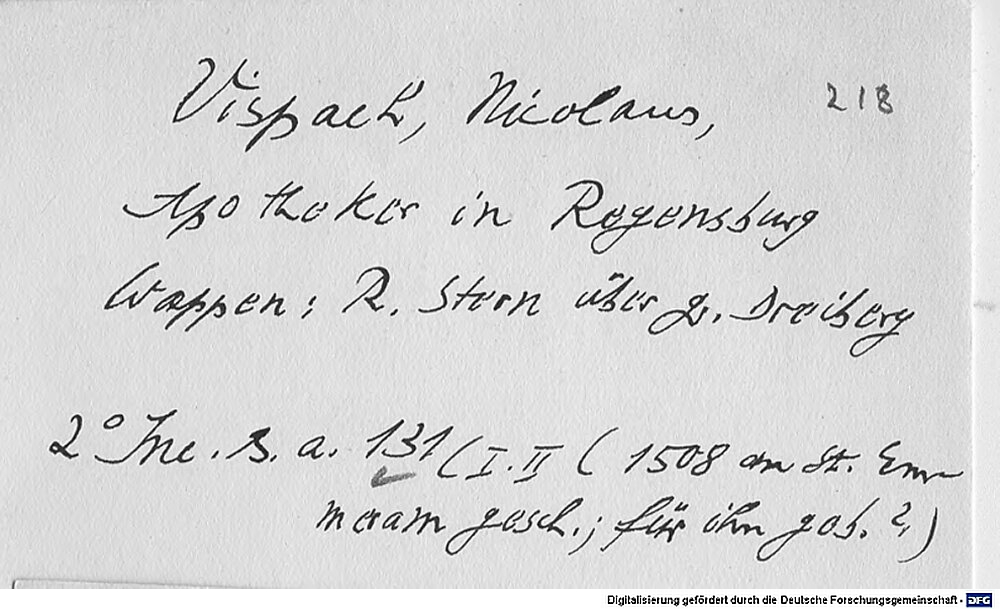 218
Vispach, Nicolaus,
Apotheker in Regensburg
Wappen: R. Stern über gr. Dreiberg
2° Inc. s. a. 131 (I. II ( 1508 an St. Em-
meram gesch.; für ihn geb.?)
Digitalisierung gefördert durch die Deutsche Forschungsgemeinschaft - DFG